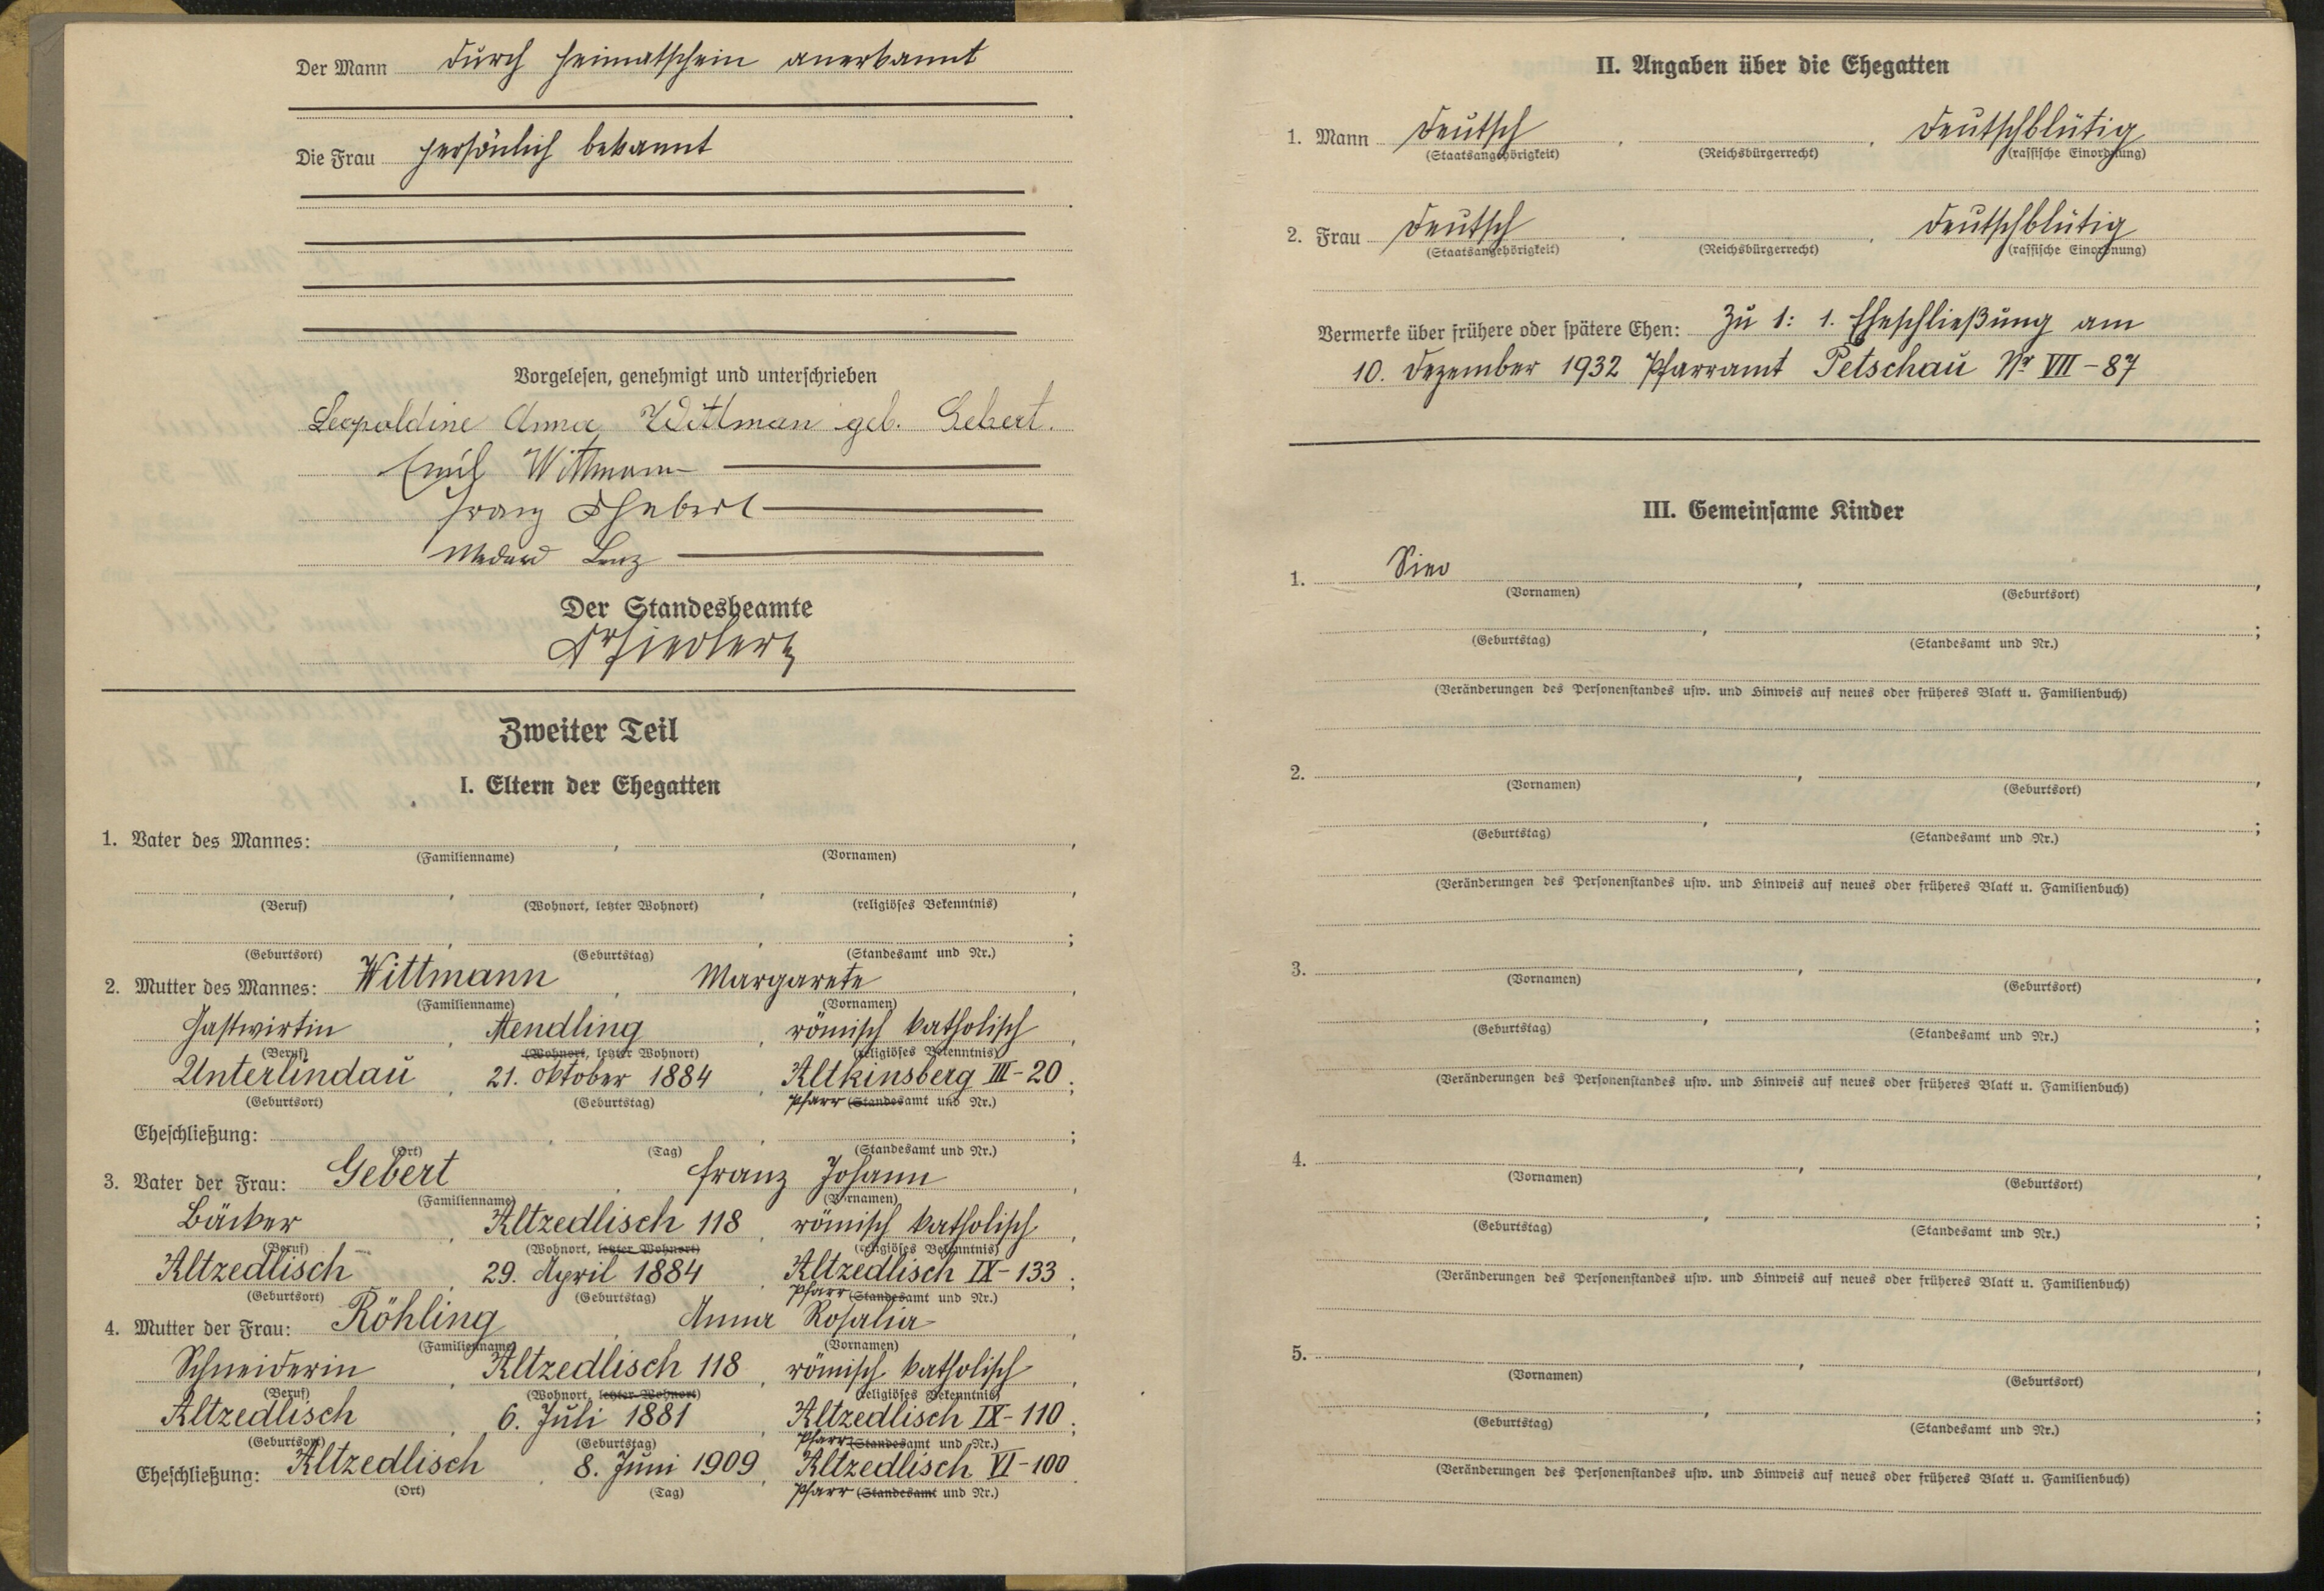 Der Mann durch Heimatschein anerkannt
Die Frau persönlich bekannt
Vorgelesen, genehmigt und unterschrieben
Leopoldine Anna Wittman geb. Gebert.
Emil Wittmann
Franz
Medard Lenz
Der Standesbeamte
Zweiter Teil
I. Eltern der Ehegatten
1. Vater des Mannes: , ,
(Familienname) (Vornamen)
, , ,
(Beruf) (Wohnort, letzter Wohnort) (religiöses Bekenntnis)
, , ;
(Geburtsort) (Geburtstag) (Standesamt und Nr.)
2. Mutter des Mannes: Wittmann , Margarete ,
(Familienname) (Vornamen)
Gastwirtin , Aendling , römisch katholisch ,
(Beruf) (Wohnort, letzter Wohnort) (religiöses Bekenntnis)
Unterlindau , 21. Oktober 1884 , Altkinsberg III-20 ;
(Geburtsort) (Geburtstag) Pfarr (Standesamt und Nr.)
Eheschließung: , , ;
(Ort) (Tag) (Standesamt und Nr.)
3. Vater der Frau: Gebert , Franz Johann ,
(Familienname) (Vornamen)
Bäcker , Altzedlisch 118 , römisch katholisch ,
(Beruf) (Wohnort, letzter Wohnort) (religiöses Bekenntnis)
Altzedlisch , 29. April 1884 , Altzedlisch IX-133 ;
(Geburtsort) (Geburtstag) Pfarr (Standesamt und Nr.)
4. Mutter der Frau: Röhling , Anna Rosalia ,
(Familienname) (Vornamen)
Schneiderin , Altzedlisch 118 , römisch katholisch ,
(Beruf) (Wohnort, letzter Wohnort) (religiöses Bekenntnis)
Altzedlisch , 6. Juli 1881 , Altzedlisch IX-110 ;
(Geburtsort) (Geburtstag) Pfarr (Standesamt und Nr.)
Eheschließung: Altzedlisch , 8. Juni 1909 , Altzedlisch VI-100
(Ort) (Tag) Pfarr (Standesamt und Nr.)
II. Angaben über die Ehegatten
1. Mann deutsch , , deutschblütig
(Staatsangehörigkeit) (Reichsbürgerrecht) (rassische Einordnung)
2. Frau deutsch , , deutschblütig
(Staatsangehörigkeit) (Reichsbürgerrecht) (rassische Einordnung)
Vermerke über frühere oder spätere Ehen: Zu 1: 1. Eheschließung am
10. Dezember 1932 Pfarramt Petschau Nr VII-87
III. Gemeinsame Kinder
1. , ,
(Vornamen) (Geburtsort)
, ;
(Geburtstag) (Standesamt und Nr.)
(Veränderungen des Personenstandes usw. und Hinweis auf neues oder früheres Blatt u. Familienbuch)
2. , ,
(Vornamen) (Geburtsort)
, ;
(Geburtstag) (Standesamt und Nr.)
(Veränderungen des Personenstandes usw. und Hinweis auf neues oder früheres Blatt u. Familienbuch)
3. , ,
(Vornamen) (Geburtsort)
, ;
(Geburtstag) (Standesamt und Nr.)
(Veränderungen des Personenstandes usw. und Hinweis auf neues oder früheres Blatt u. Familienbuch)
4. , ,
(Vornamen) (Geburtsort)
, ;
(Geburtstag) (Standesamt und Nr.)
(Veränderungen des Personenstandes usw. und Hinweis auf neues oder früheres Blatt u. Familienbuch)
5. , ,
(Vornamen) (Geburtsort)
, ;
(Geburtstag) (Standesamt und Nr.)
(Veränderungen des Personenstandes usw. und Hinweis auf neues oder früheres Blatt u. Familienbuch)